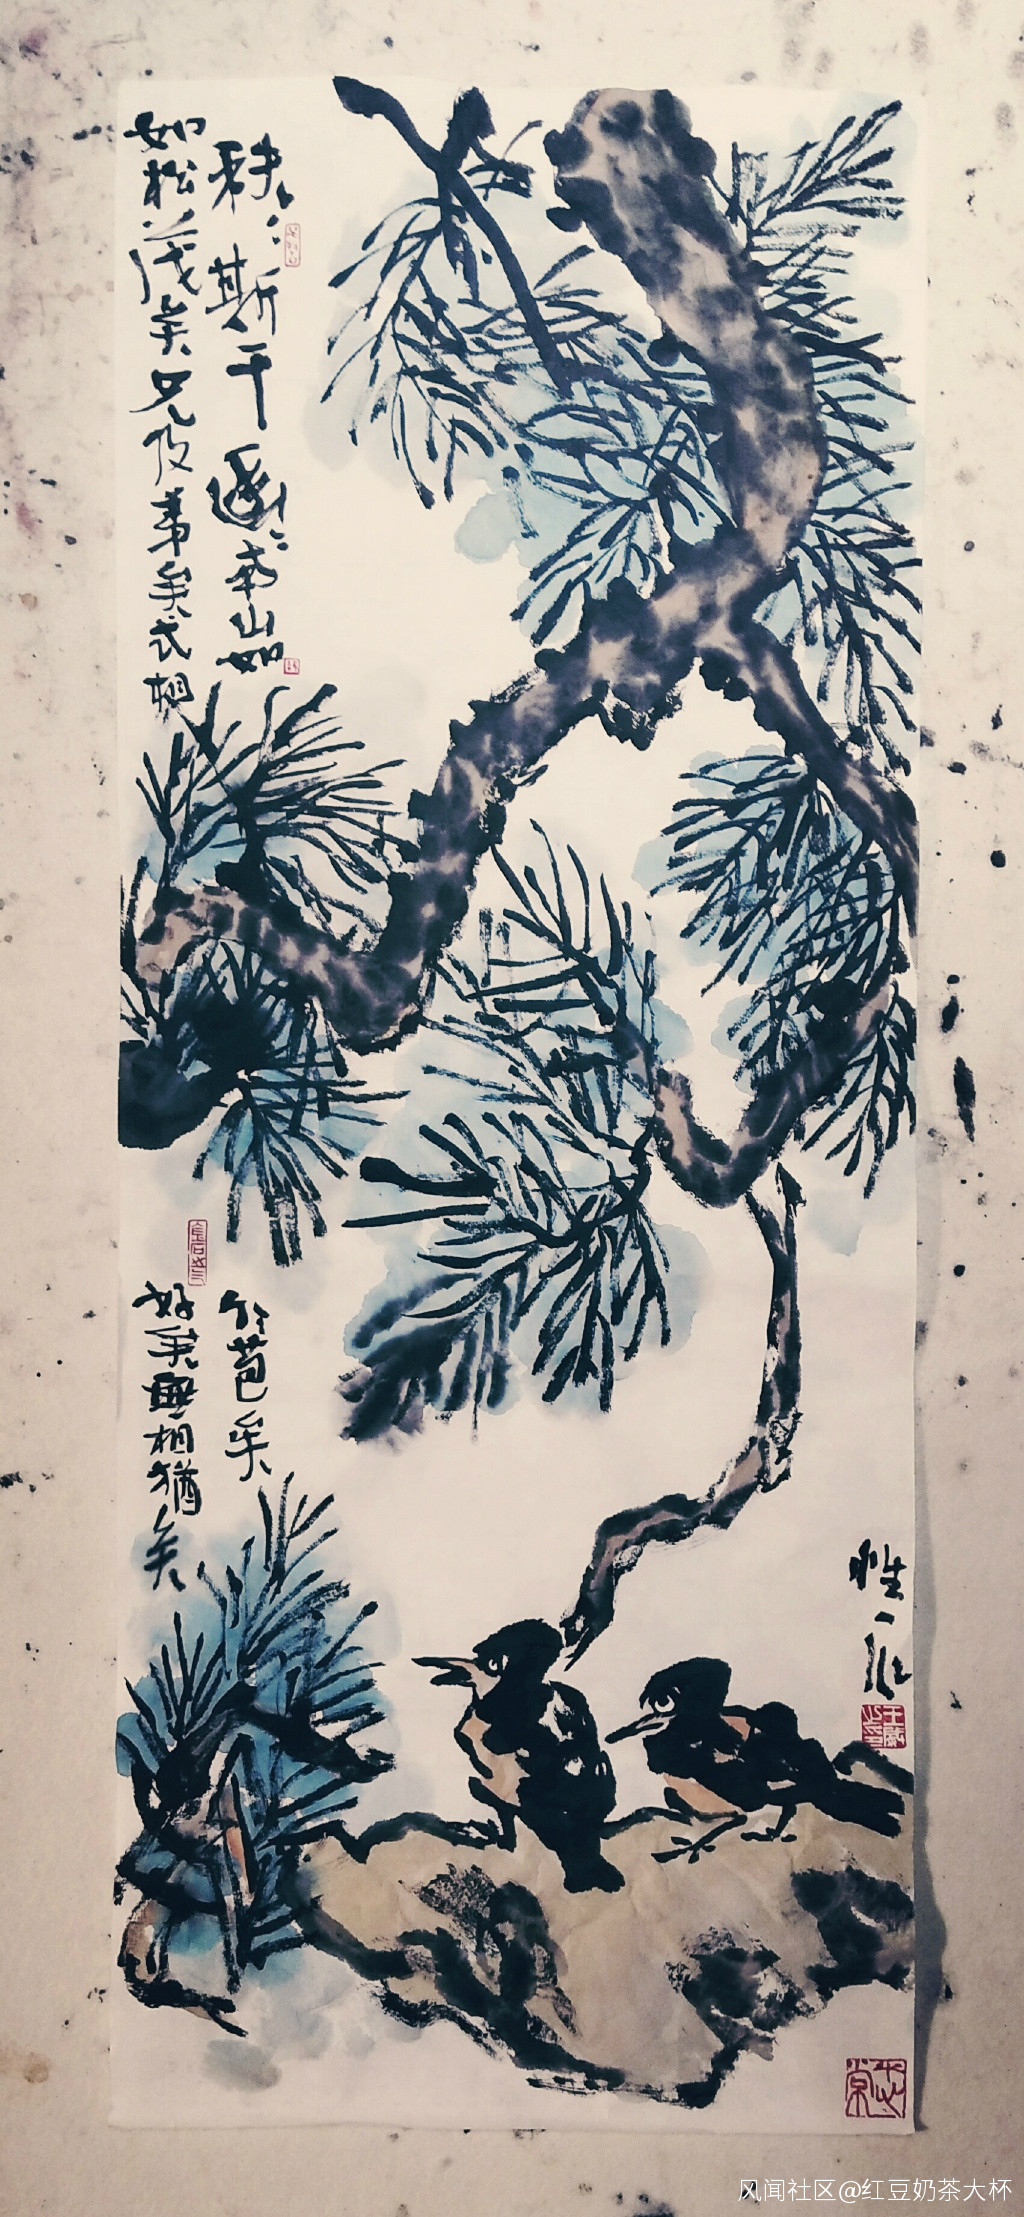 秩〻斯干幽〻南山如
竹苞矣
如松茂矣兄及弟矣式相
好矣無相猶矣
风闻社区@红豆奶茶大杯